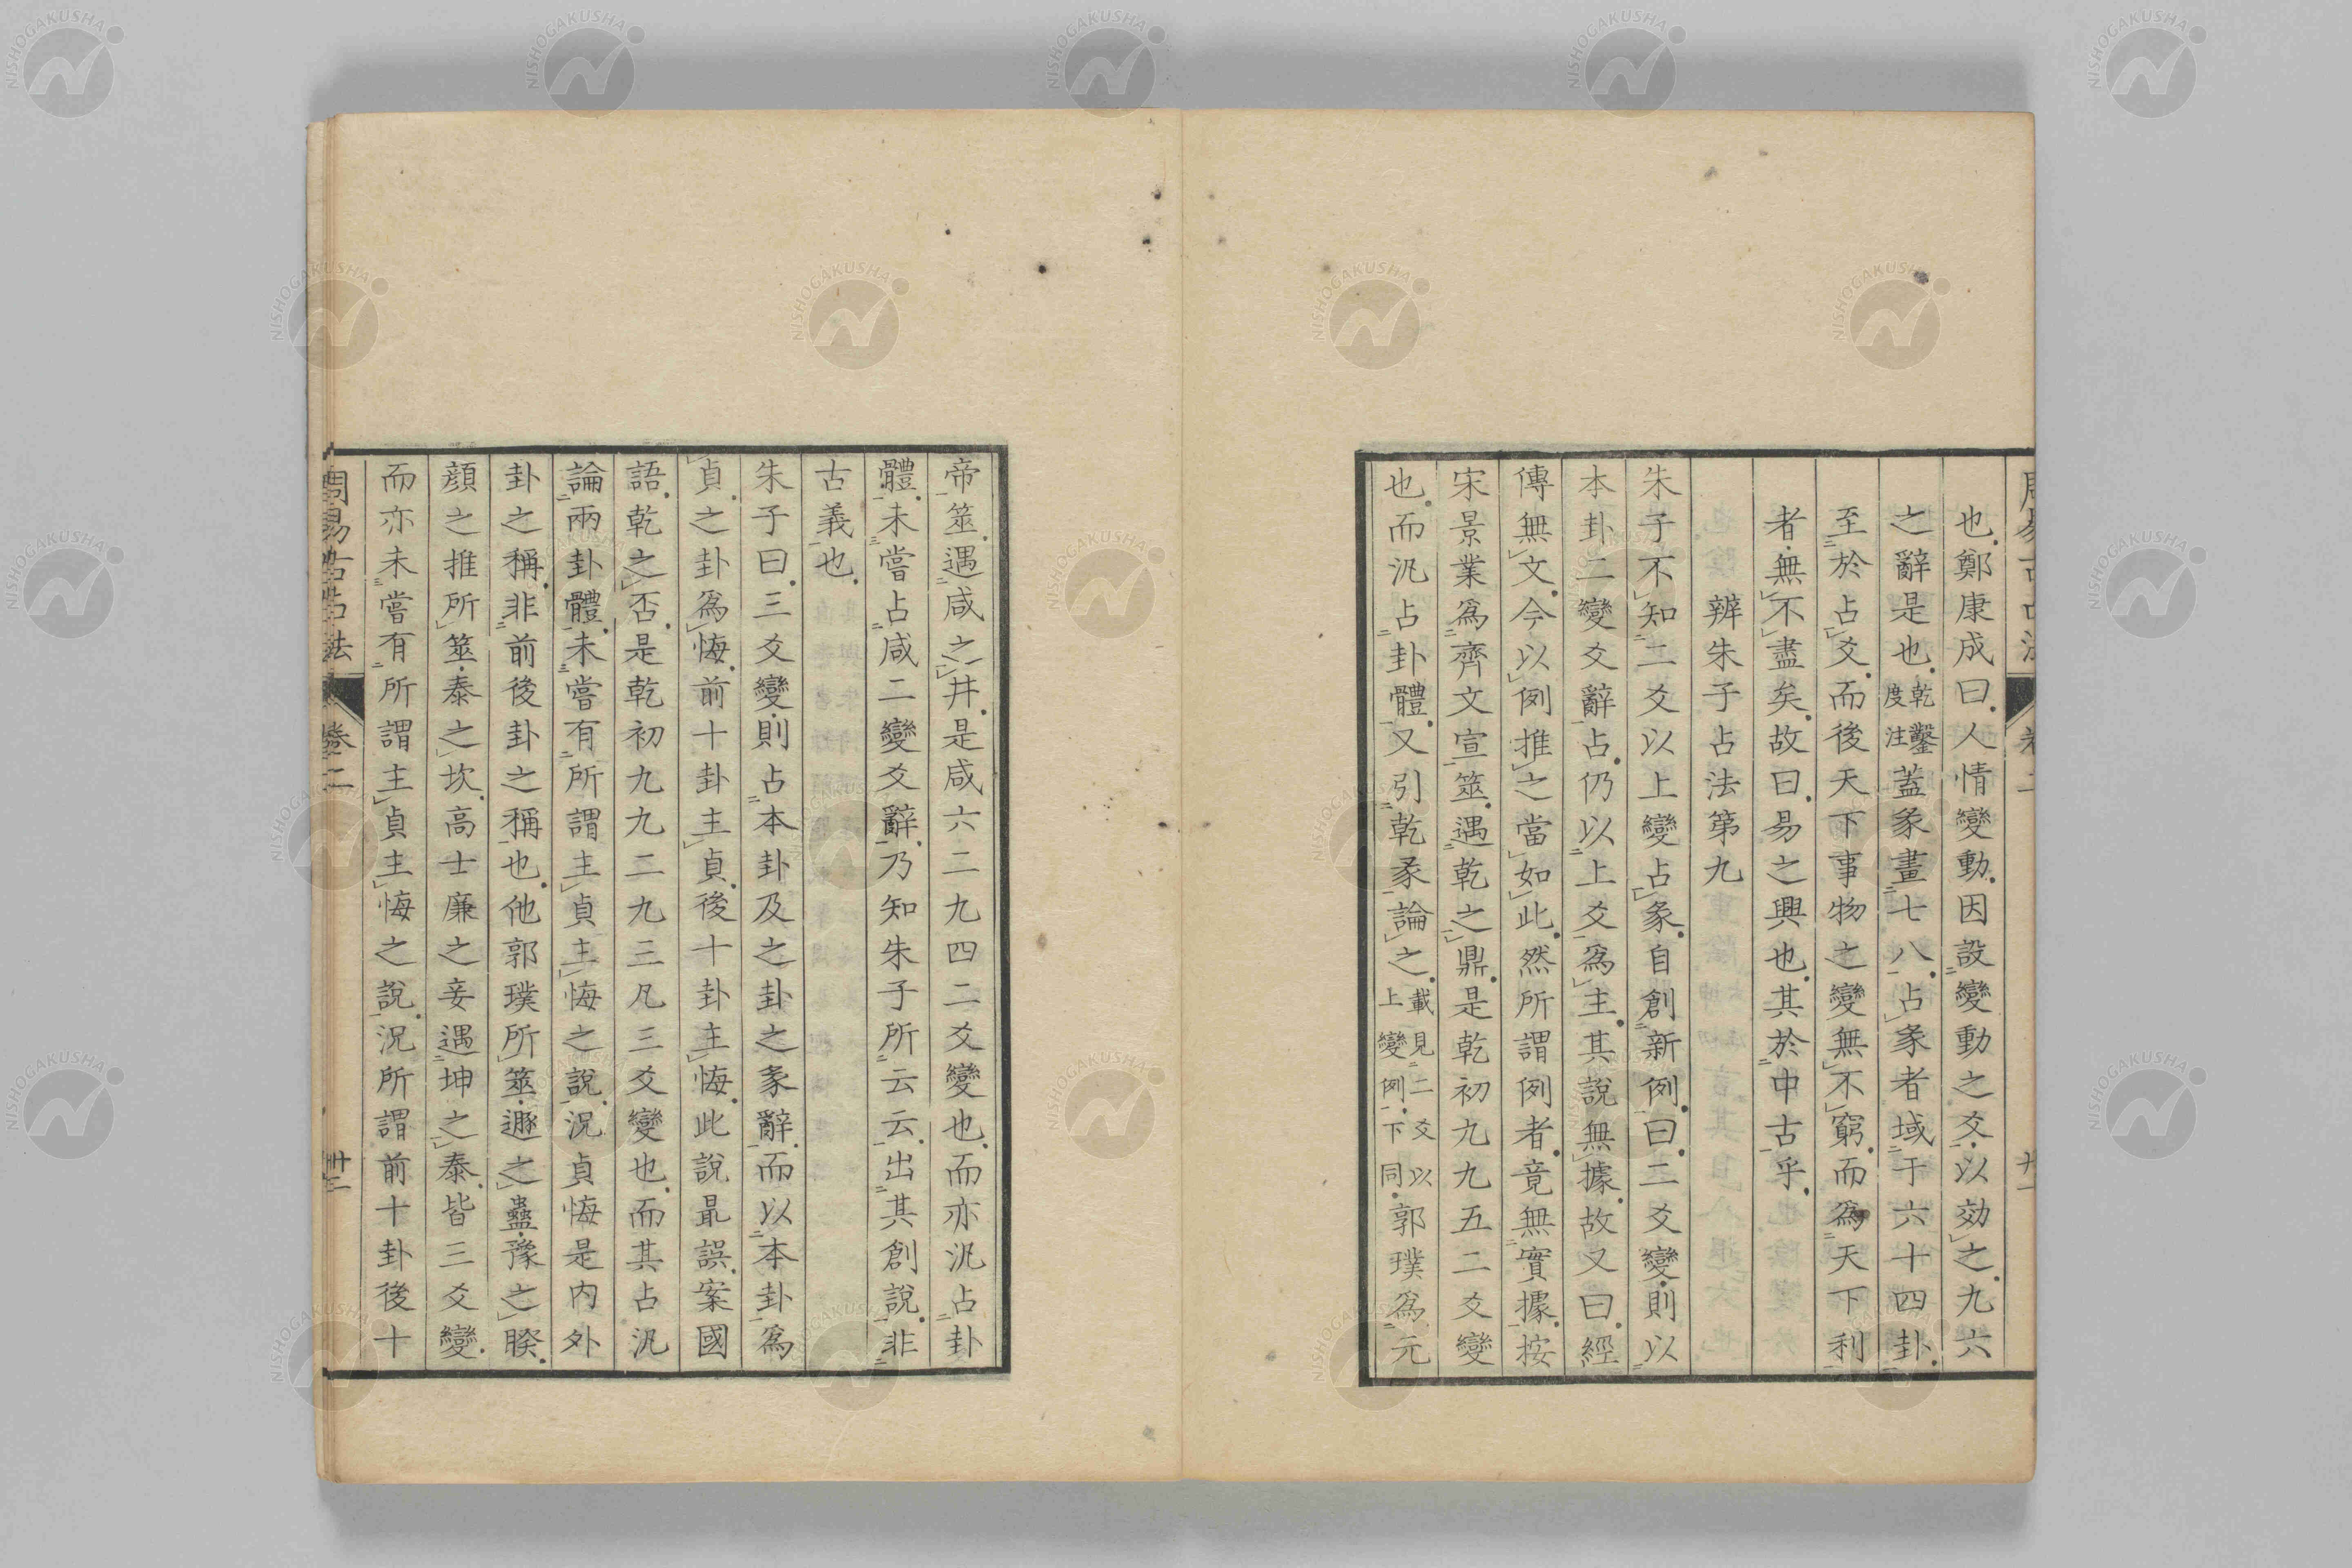 也鄭康成曰人情變動因設變動之爻以効之九六
之辭是也乾鑿度注蓋彖畫七八占彖者域于六十四卦
至於占爻而後天下事物之變無不窮而爲天下利
者無不盡矣故曰易之興也其於中古乎
辨朱子占法第九
朱子不知二爻以上變占彖自創新例曰二爻變則以
本卦二變爻辭占仍以上爻爲主其說無據故又曰經
傳無文今以例推之當如此然所謂例者竟無實據按
宋景業爲齊文宣筮遇乾之鼎是乾初九九五二爻變
也而汎占卦體又引乾彖論之載見二爻以上變例下同郭璞爲元
帝筮遇咸之井是咸六二九四二爻變也而亦汎占卦
體未嘗占咸二變爻辭乃知朱子所云云出其創說非
古義也
朱子曰三爻變則占本卦及之卦之彖辭而以本卦爲
貞之卦爲悔前十卦主貞後十卦主悔此說最誤案國
語乾之否是乾初九九二九三凡三爻變也而其占汎
論兩卦體未嘗有所謂主貞主悔之說況貞悔是內外
卦之稱非前後卦之稱也他郭璞所筮遯之蠱豫之睽
顔之推所筮泰之坎高士廉之妾遇坤之泰皆三爻變
而亦未嘗有所謂主貞主悔之說況所謂前十卦後十
周易古占法 卷二